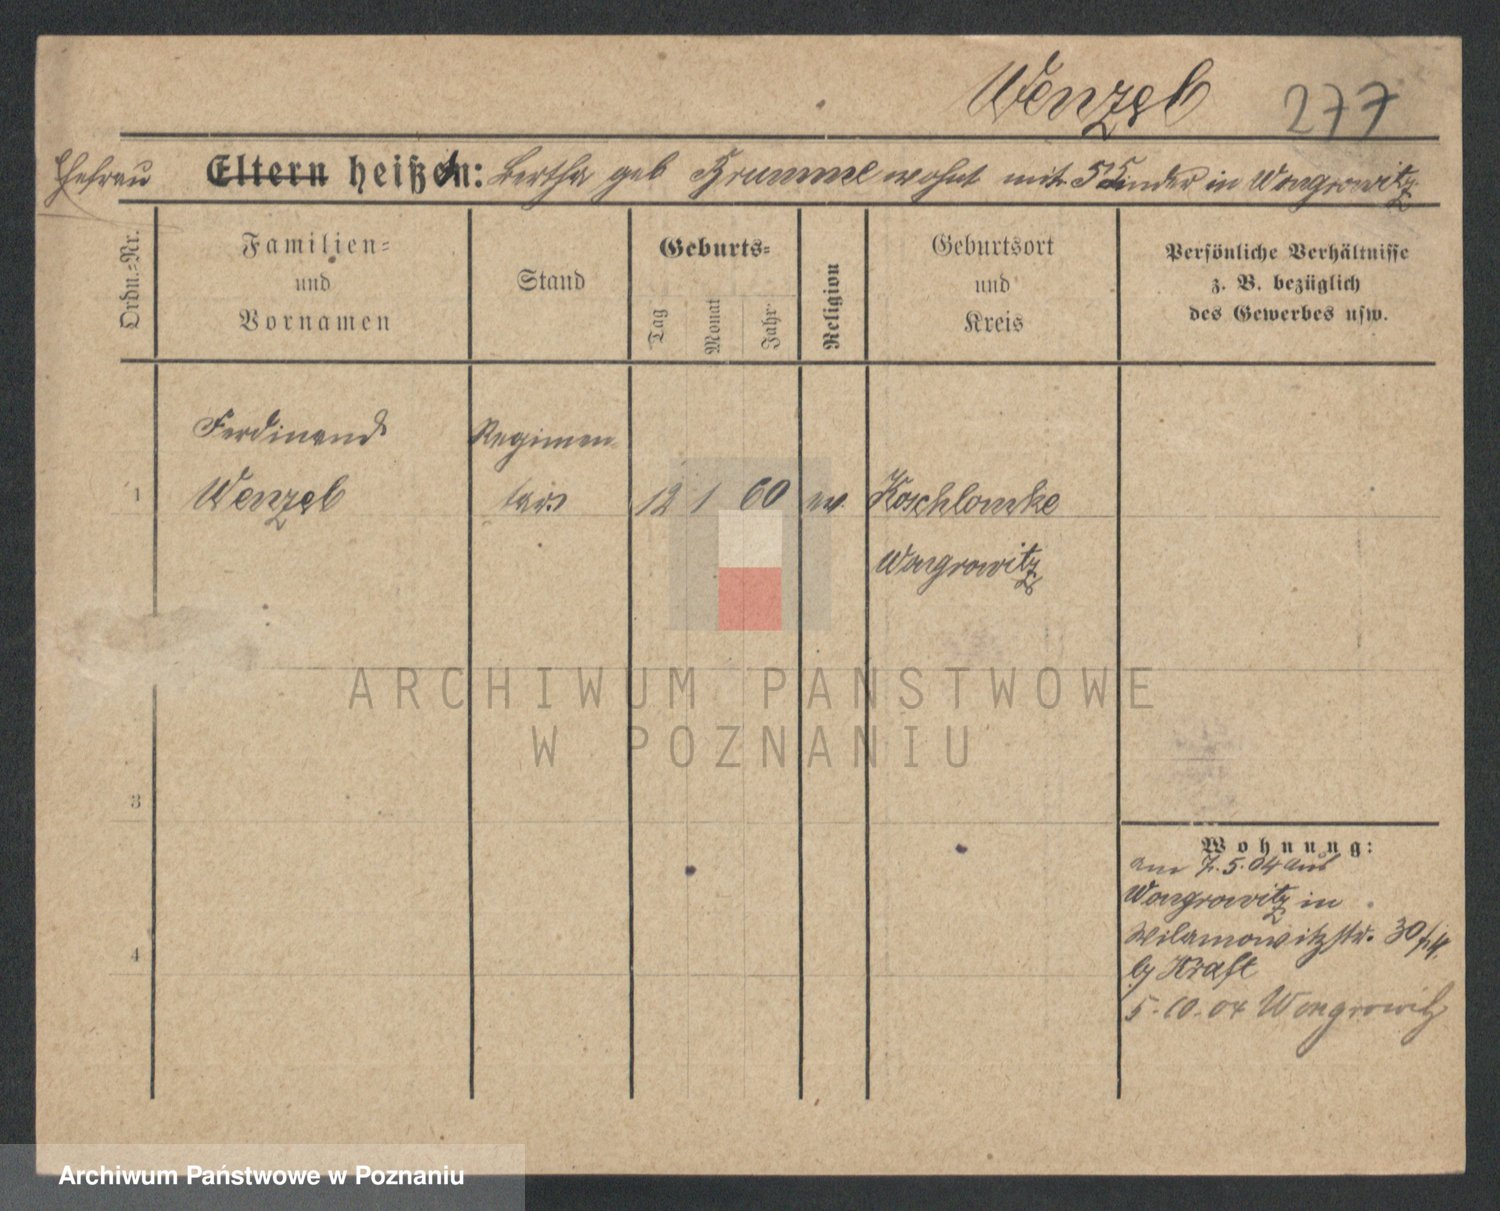 Wenzel 277
Ehefrau Eltern heißen: Bertha geb Brummel wohnt mit 5 Kinder in Wongrowitz
Ordn.-Nr.
Familien-
und
Vornamen
Stand
Geburts-
Tag
Monat
Jahr
Religion
Geburtsort
und
Kreis
Persönliche Verhältnisse
z. B. bezüglich
des Gewerbes usw.
Ferdinand
Wenzel
Regimen-
12 1 60 ev.
1
Koschlomke
Wongrowitz
3
4
Wohnung:
am 7.5.04 aus
Wongrowitz in
Wilamowitzstr. 30
bj Kraft
5.10.04 Wongrowitz
ARCHIWUM PAŃSTWOWE
W POZNANIU
Archiwum Państwowe w Poznaniu